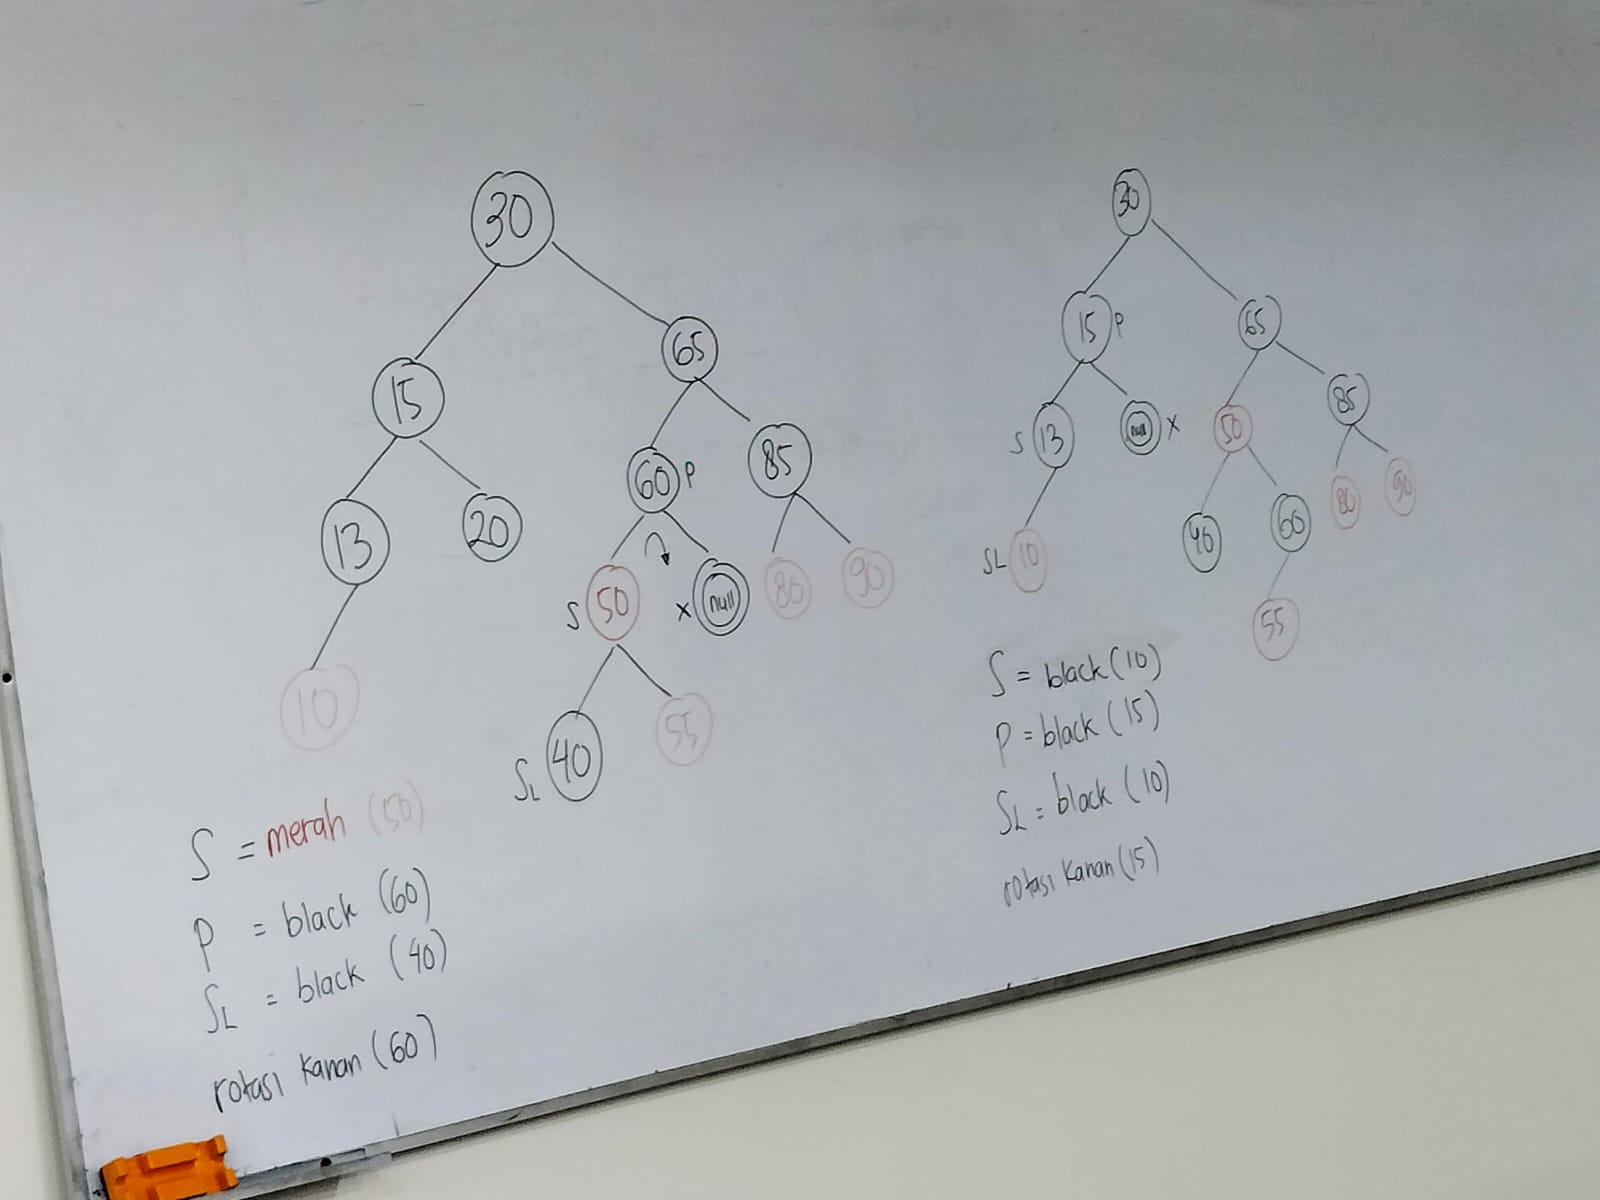 30
15
65
13
20
60 P
85
S 50
x null
80
90
10
SL 40
55
S = merah (50)
P = black (60)
SL = black (40)
rotasi kanan (60)
30
15 P
65
S 13
null x
50
85
SL 10
40
60
80
90
55
S = black (10)
P = black (15)
SL = black (10)
rotasi kanan (15)